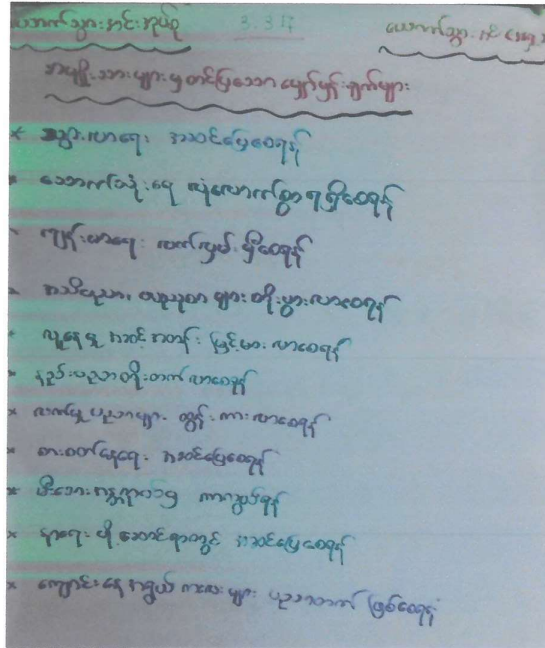 ယောက်သွားအင်းအုပ်စု 3.3.17 ယောက်သွား
အမျိုးသားများမှတင်ပြသောမျှော်မှန်းချက်များ
* သွားလာရေး အဆင်ပြေစေရန်
* သောက်သုံးရေ လုံလောက်စွာရရှိစေရန်
* ကျန်းမာရေး လက်လှမ်းမှီစေရန်
* အသိပညာ၊ ဗဟုသုတများ တိုးပွားလာစေရန်
* လူနေမှု အဆင့်အတန်း မြင့်မားလာစေရန်
* နည်းပညာတိုးတက်လာစေရန်
* လက်မှုပညာများ ထွန်းကားလာစေရန်
* စားဝတ်နေရေး အဆင်ပြေစေရန်
* မီးဘေးအန္တရာယ်မှ ကာကွယ်ရန်
* နာရေး ပို့ဆောင်ရာတွင် အဆင်ပြေစေရန်
* ကျောင်းနေအရွယ်ကလေးများ ပညာတတ် ဖြစ်စေရန်